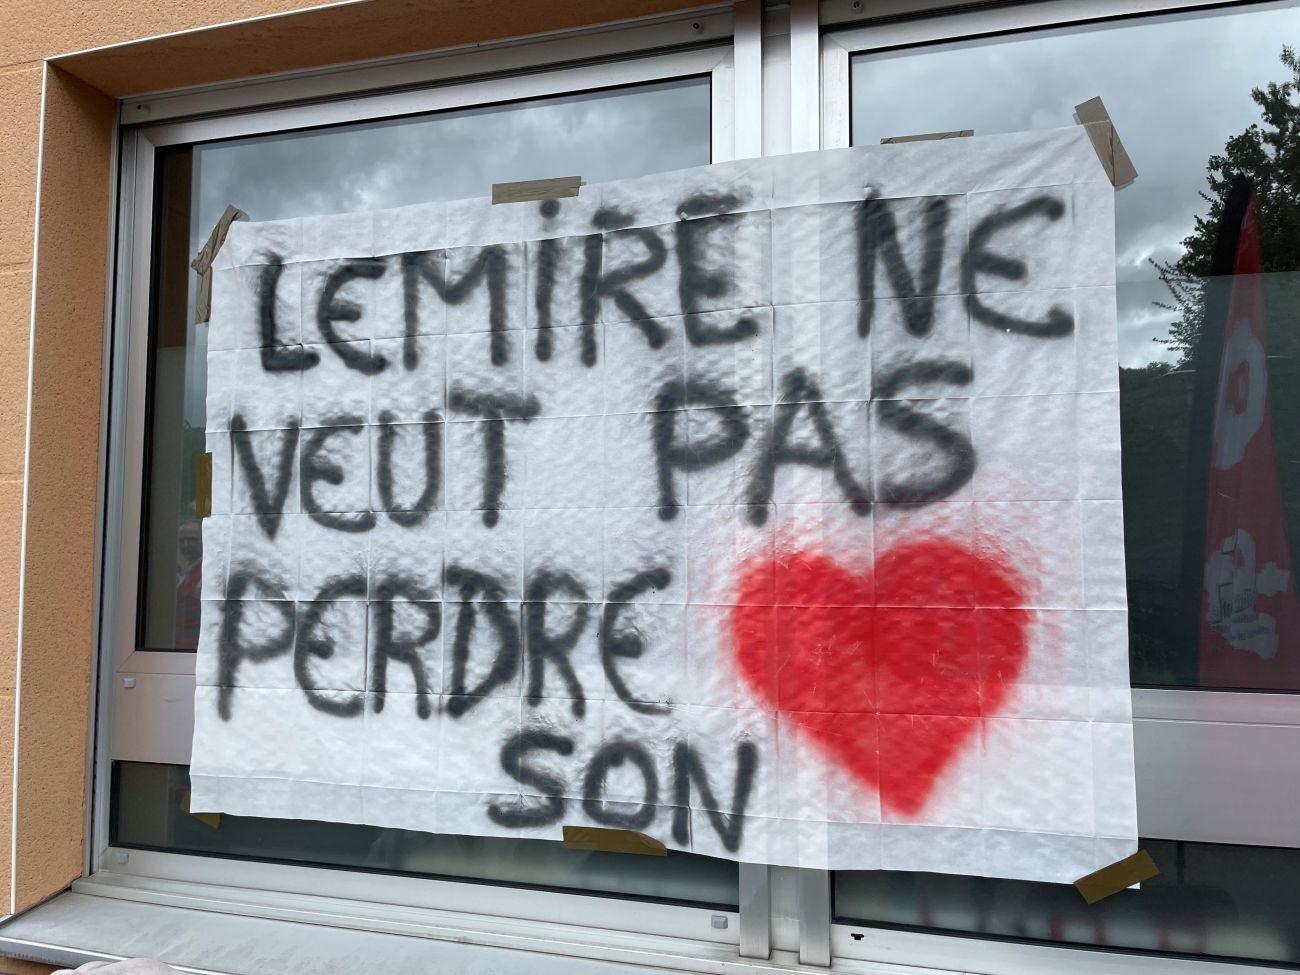 LEMIRE NE
VEUT PAS
PERDRE
SON